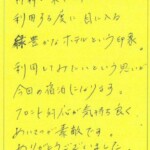 利用する度に目に入る
緑豊かなホテルという印象。
利用してみたいという思いが
今回の宿泊になります。
フロント対応が気持ち良く
あいさつが素敵です。
ありがとうございました。